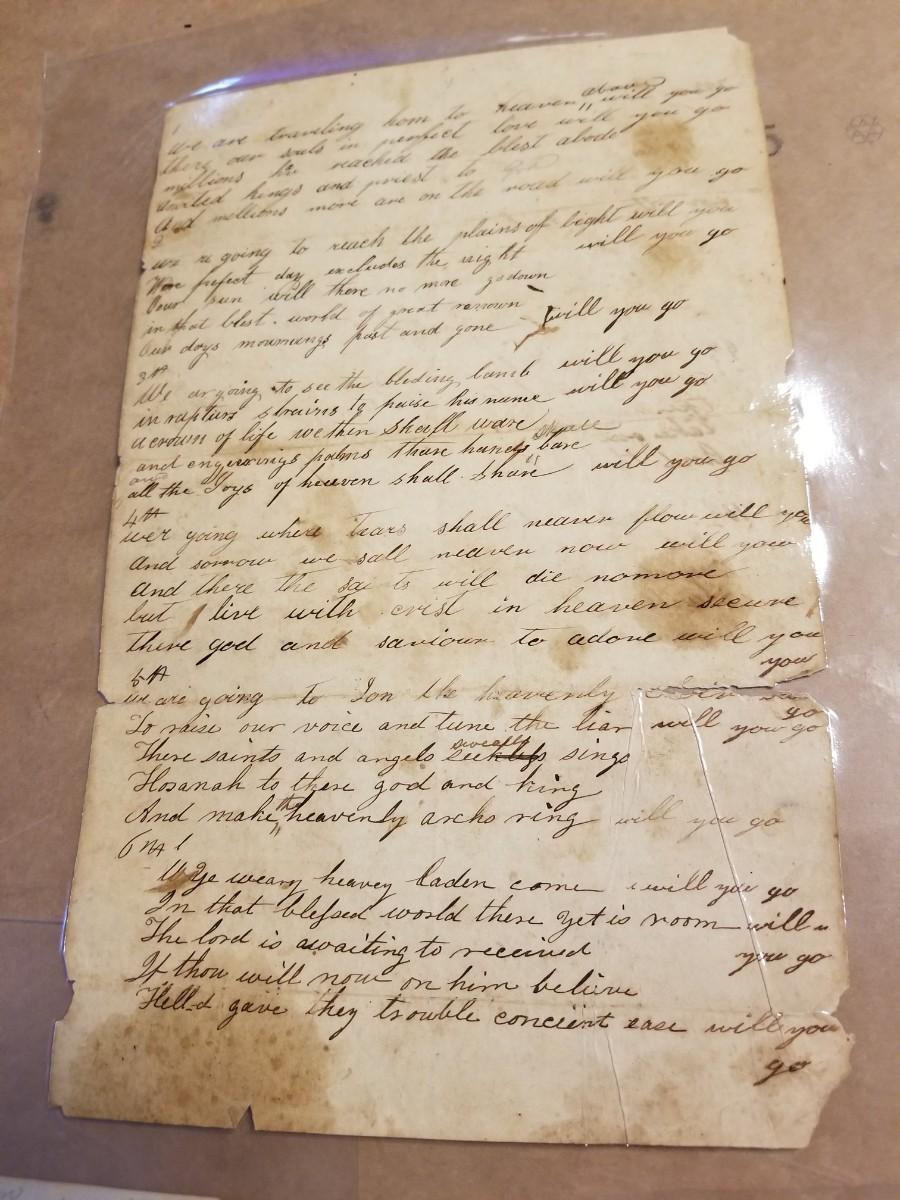 1
We are traveling hom to heaven above will you go
there our souls in perfect love will you go
millions he reached the blest abode
anited kings and priest to
And millions more are on the road will you go
2
we re going to reach the plains of light will you
Were perfect day excludes the night will you go
Oour sun will there no more godown
in that blest world of great renown
Our days mournings past and gone will you go
3th
We ar going to see the bleding lamb will you go
in rapturs strains to praise his name will you go
a crown of life we then shall ware
and palms thare hands share bare
all the Joys of heaven shall share will you go
4th
wer going where tears shall neaver flow will you
And sorrow we sall neaver now will you
And there the sai ts will die nomore
but live with crist in heaven secure
there god and saviour to adore will you
you
5th
we are going to Jon the heavenly
go
To raise our voice and tune the liar will you go
There saints and angels sweetly sings
Hosanah to there god and king
And make the heavenly archs ring will you go
6th
Ye weary heavey laden come will you go
In that blessed world there yet is room will
The lord is awaiting to received you go
If thou will now on him believe
Hell-d gave they trouble concient ease will you
go